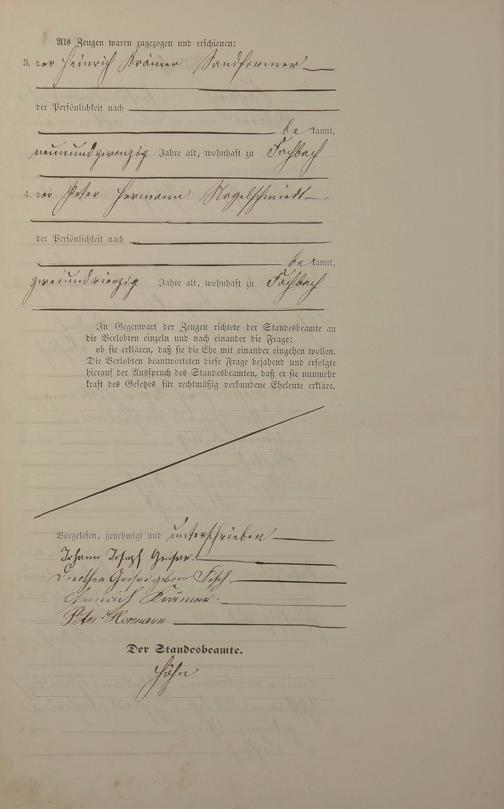 Als Zeugen waren zugezogen und erschienen:
3. der Heinrich Krämer Sandformer
der Persönlichkeit nach
be kannt,
neunundzwanzig Jahre alt, wohnhaft zu Fachbach
4. der Peter Hermann Nagelschmiedt
der Persönlichkeit nach
be kannt,
zweiundvierzig Jahre alt, wohnhaft zu Fachbach
In Gegenwart der Zeugen richtete der Standesbeamte an
die Verlobten einzeln und nach einander die Frage:
ob sie erklären, daß sie die Ehe mit einander eingehen wollen.
Die Verlobten beantworteten diese Frage bejahend und erfolgte
hierauf der Ausspruch des Standesbeamten, daß er sie nunmehr
kraft des Gesetzes für rechtmäßig verbundene Eheleute erkläre.
Vorgelesen, genehmigt und unterschrieben
Johann Josef
Dorothea geborne
Heinrich Krämer
Peter Hermann
Der Standesbeamte.
Höhn